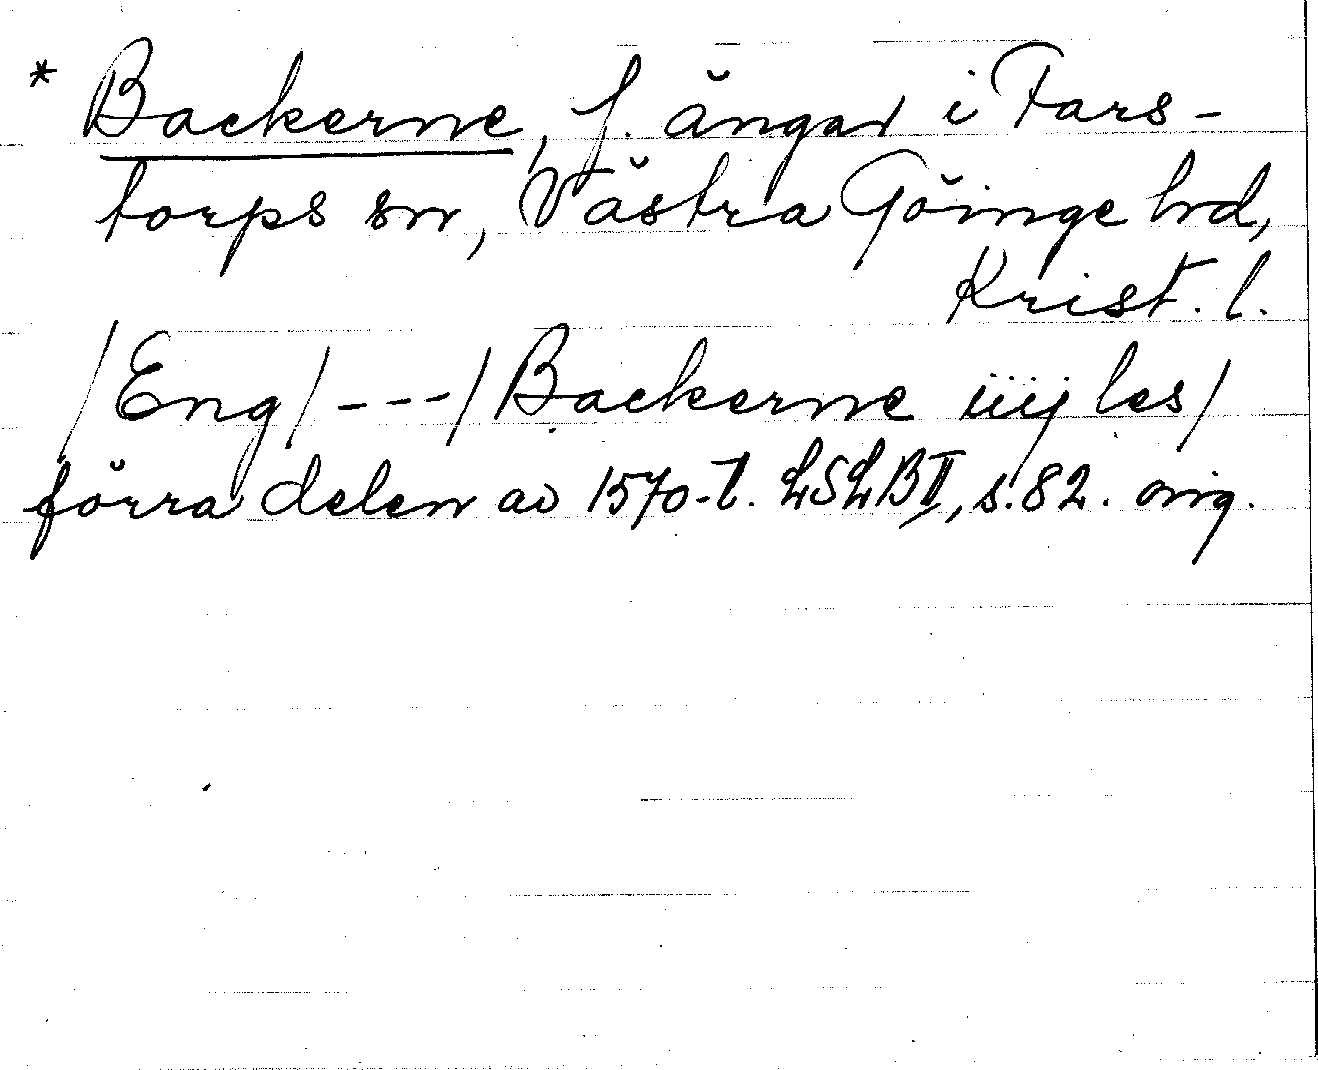 * Backerne, f. ängar i Fars-
torps sn, Västra Göinge hd,
Krist. l.
/Eng/ --- / Backerne iiij les/
förra delen av 1570-t. LSLB II, s. 82. orig.